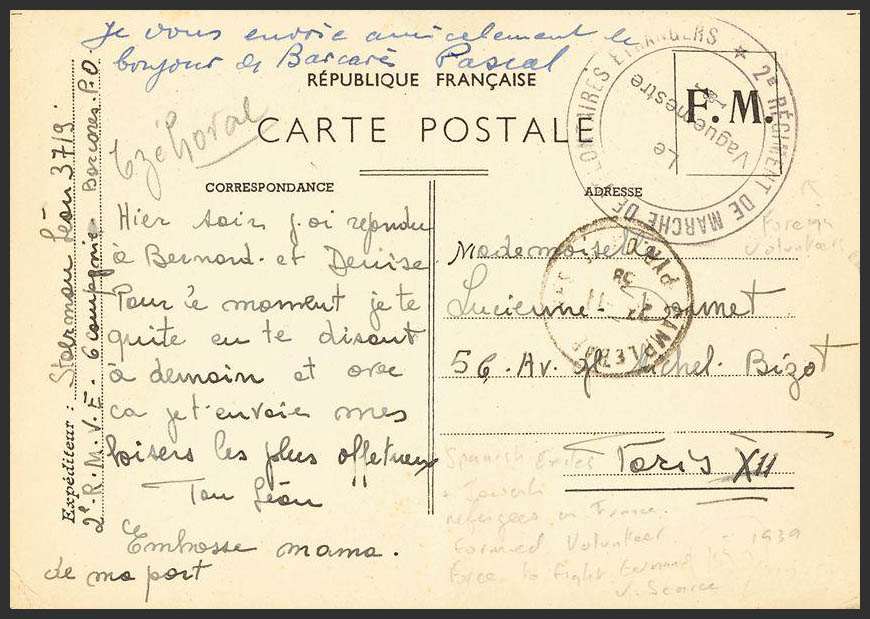 Je vous envoie amicalement le
bonjour de Barcarès Pascal
RÉPUBLIQUE FRANÇAISE
CARTE POSTALE
F.M.
2E RÉGIMENT DE MARCHE DE VOLONTAIRES ÉTRANGERS
Le
Vaguemestre
CORRESPONDANCE
ADRESSE
Expéditeur : Léon 3719
2e. R. M. V. E. 6 compagnie Barcares. P.O.
Hier soir j.ai repondu
à Bernard. et Denise
Pour le moment je te
quite en te disant
à demain et avec
ca je t'envoie mes
baisers les plus affetueux
Ton Léon
Embrasse mama.
de ma part
Mademoiselle
Lucienne
56. Av. gl Michel. Bizot
Paris XII
Foreign
Volunteers
Spanish Exiles
+ Jewish
refugees in France.
formed Volunteer 1939
force to fight
v. Scarce